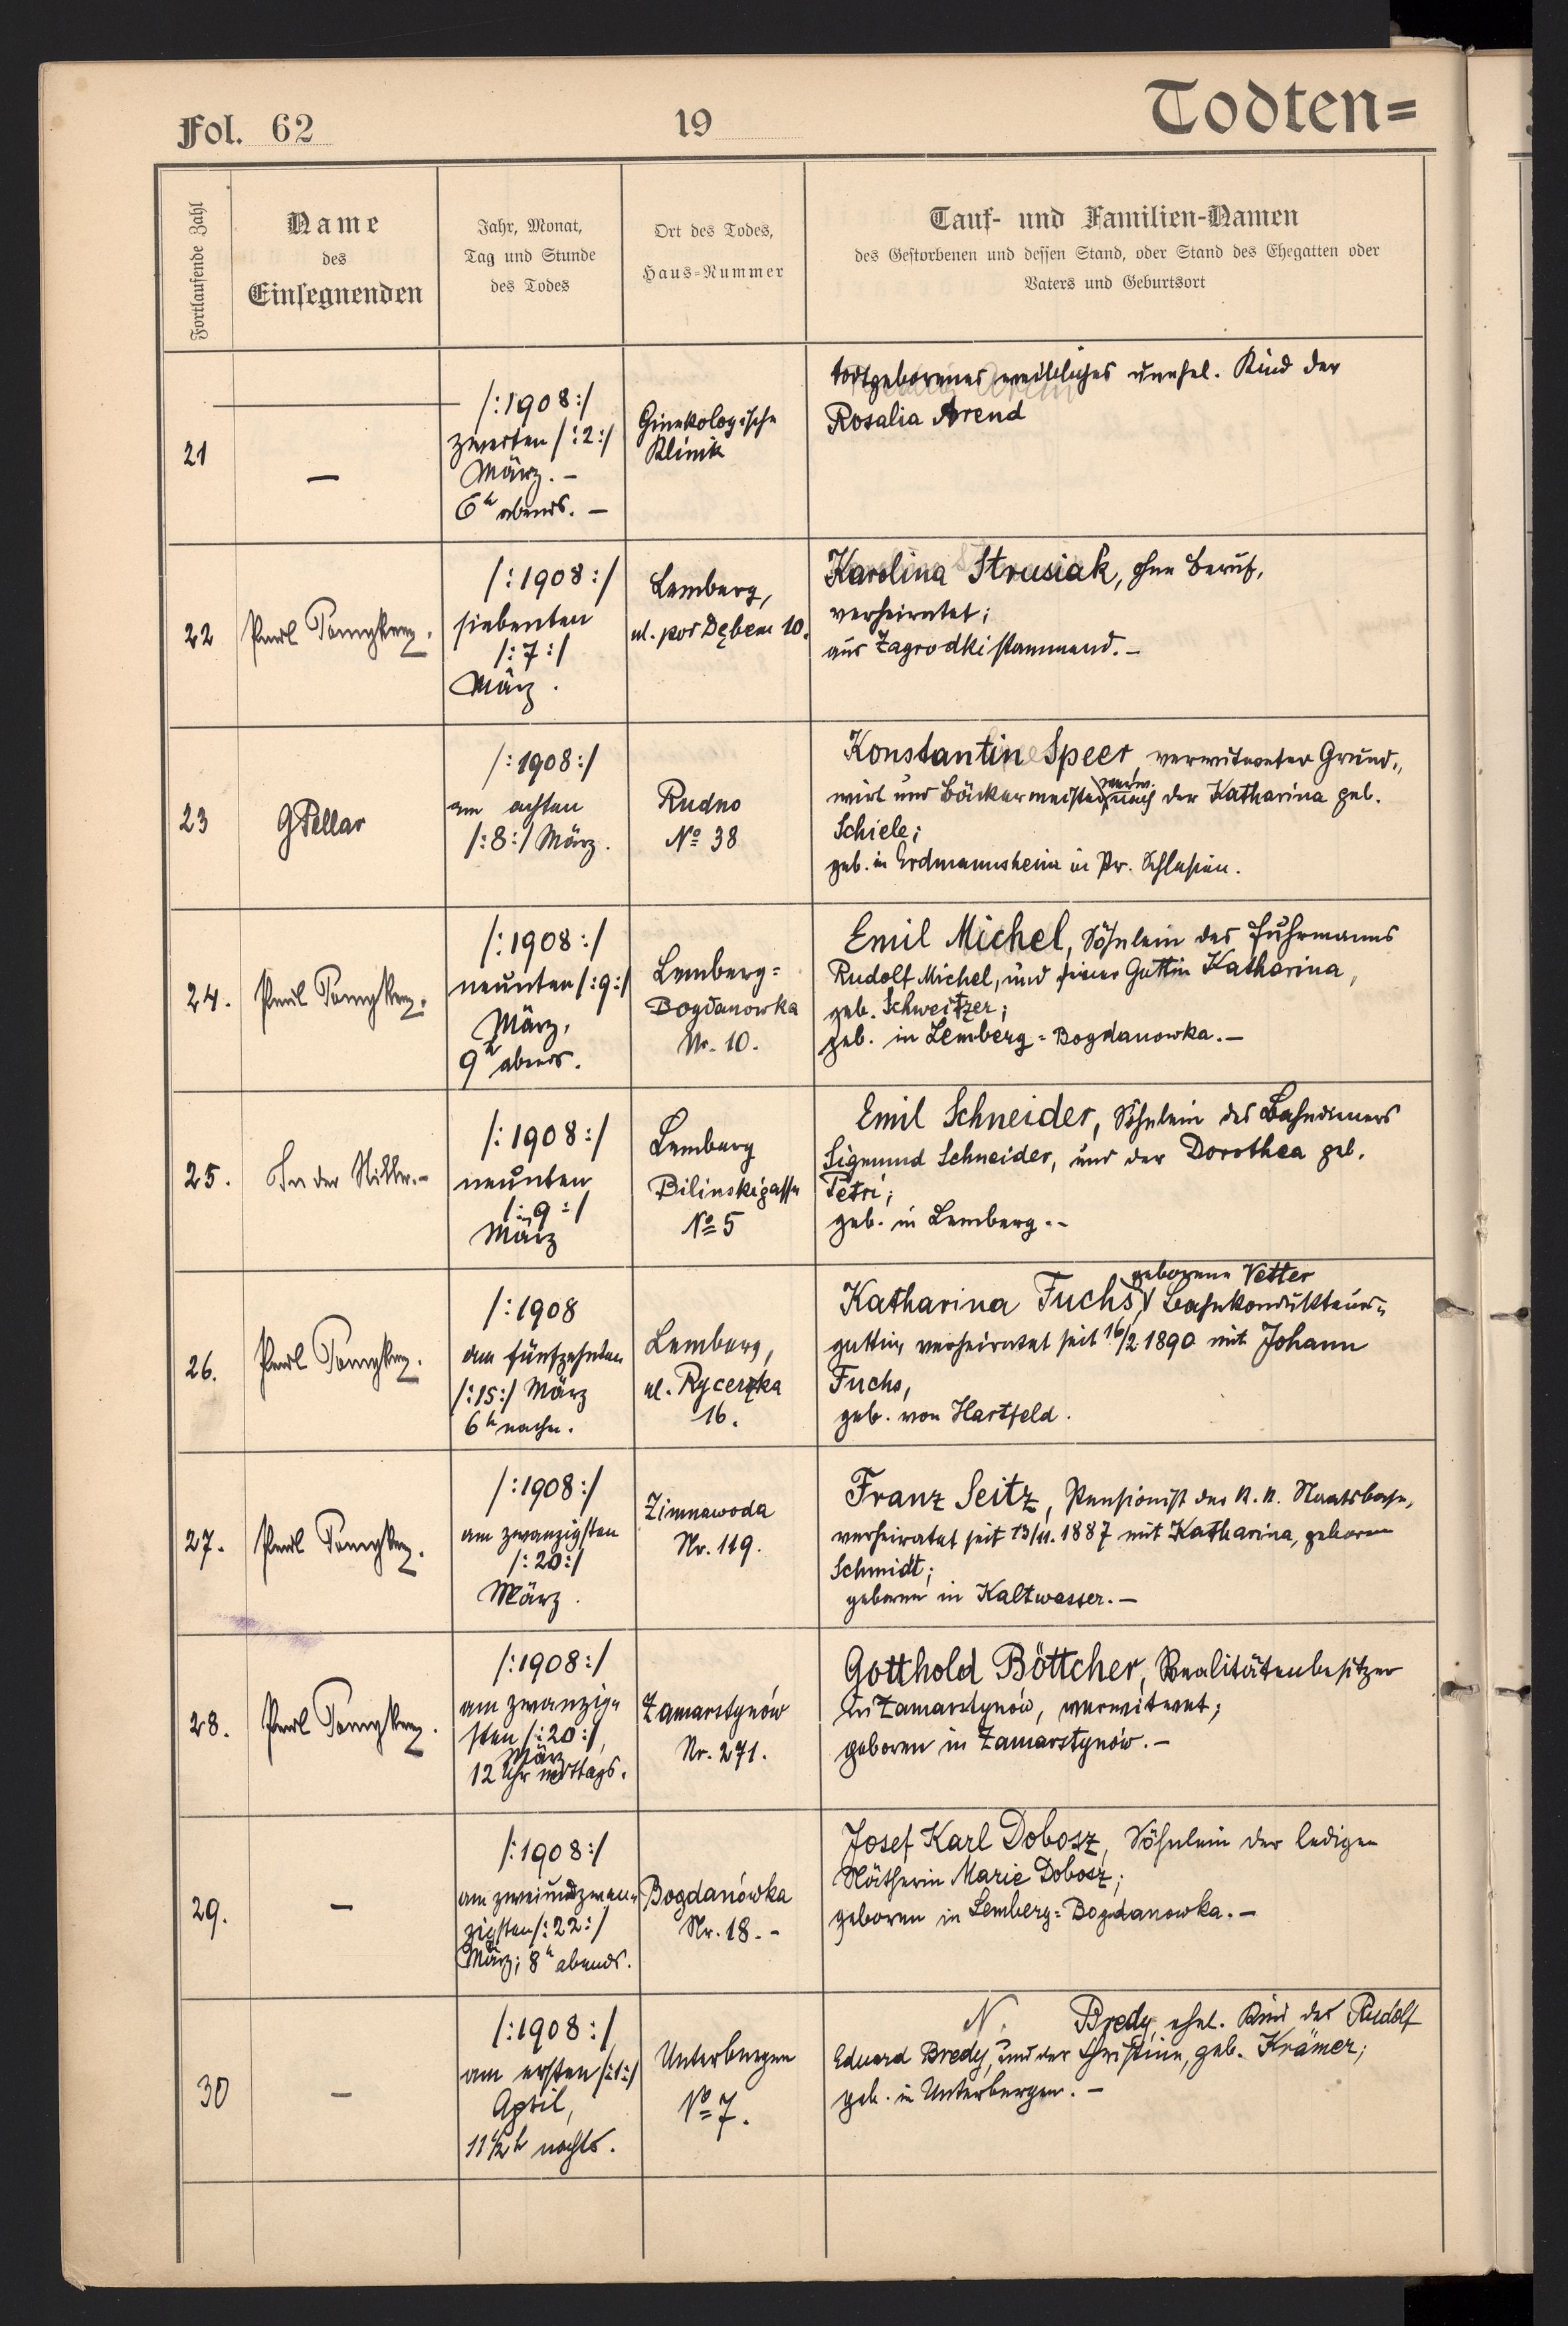 Fol. 62
19
Todten=
Fortlaufende Zahl
Name
des
Einsegnenden
Jahr, Monat,
Tag und Stunde
des Todes
Ort des Todes,
Haus=Nummer
Tauf- und Familien-Namen
des Gestorbenen und dessen Stand, oder Stand des Ehegatten oder
Vaters und Geburtsort
21
—
/:1908:/
zweiten /:2:/
März. –
6h abends. –
Ginekologische
Klinik
todtgeborenes weibliches unehel. Kind der
Rosalia Arend
22
Paul
/:1908:/
siebenten
/:7:/
März.
Lemberg,
ul. pod Dębem 10.
Karolina Strusiak, ohne Beruf,
verheiratet;
aus Zagrodki stammend. –
23
GPellar
/:1908:/
am achten
/:8:/ März.
Rudno
No 38
Konstantin Speer verwitweter Grund„
wirt und Bäckermeister nach der Katharina geb.
Schiele;
geb. in Erdmannsheim in Pr. Schlesien.
24.
Paul
/:1908:/
neunten /:9:/
März,
9h abends.
Lemberg=
Bogdanowka
Nr. 10.
Emil Michel, Söhnlein des Fuhrmanns
Rudolf Michel, und seiner Gattin Katharina,
geb. Schweitzer;
geb. in Lemberg=Bogdanowka. –
25.
/:1908:/
neunten
/:9:/
März
Lemberg
Bilinskigasse
No 5
Emil Schneider, Söhnlein des Bahndieners
Sigmund Schneider, und der Dorothea geb.
Petri;
geb. in Lemberg. –
26.
Paul
/:1908
am fünfzehnten
/:15:/ März
6h nachm.
Lemberg,
ul. Rycerska
16.
geborene Vetter
Katharina Fuchs, Bahnkondukteurs„
gattin, verheiratet seit 16/2 1890 mit Johann
Fuchs,
geb. von Hartfeld.
27.
Paul
/:1908:/
am zwanzigsten
/:20:/
März.
Zimnawoda
Nr. 119.
Franz Seitz, Pensionist der k.k. Staatsbahn,
verheiratet seit 13/11. 1887 mit Katharina, geborene
Schmidt;
geboren in Kaltwasser. –
28.
Paul
/:1908:/
am zwanzig„
sten /:20:/,
März
12 Uhr mittags.
Zamarstynów
Nr. 271.
Gotthold Böttcher, Realitätenbesitzer
in Zamarstynów, verwitwet;
geboren in Zamarstynów. –
29.
–
/:1908:/
am zweiundzwan„
zigsten /:22:/
März; 8h abends.
Bogdanówka
Nr. 18. –
Josef Karl Dobosz, Söhnlein der ledigen
Nätherin Marie Dobosz;
geboren in Lemberg=Bogdanowka. –
30
–
/:1908:/
am ersten /:1:/
April,
11½h nachts.
Unterbergen
No 7.
N. Bredy, ehel. Kind des Rudolf
Eduard Bredy, und der Christine, geb. Krämer;
geb. in Unterbergen. –